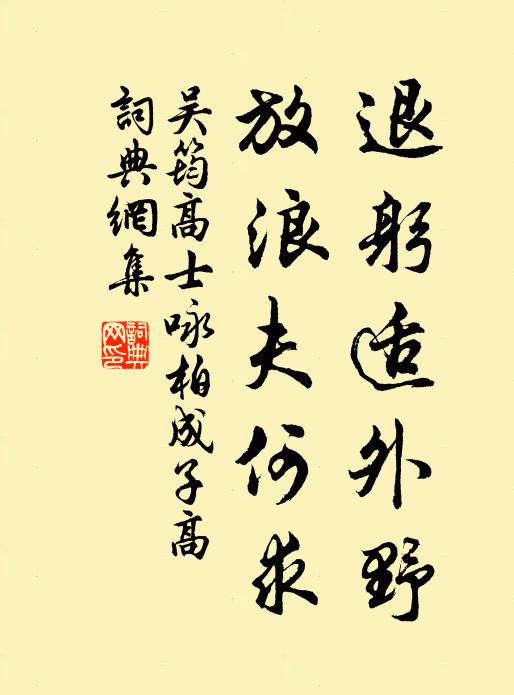 退躬适外野
放浪夫何求
吴筠高士咏柏成子高
詞典網集
詞典網印